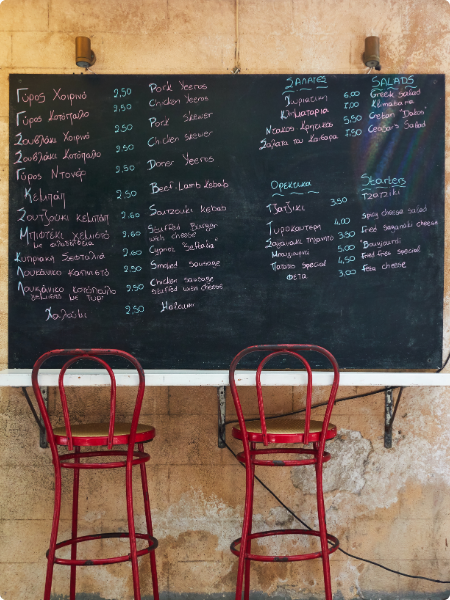 Γύρος Χοιρινό 2,50 Pork Yeeros
Γύρος Κοτόπουλο 2.50 Chicken Yeeros
Σουβλάκι Χοιρινό 2.50 Pork Skewer
Σουβλάκι Κοτόπουλο 2.50 Chicken skewer
Γύρος Ντονέρ 2.50 Doner Yeeros
Κεμπάπ 2.50 Beef-Lamb Kebab
Σουτζούκι κεμπάπ 2.60 Soutzouki kebab
Μπιφτέκι γεμιστό 2.60 Stuffed Burger
with cheese
Κυπριακή Σεφταλιά 2.60 Cyprus "Seftalia"
Λουκάνικο καπνιστό 2.50 Smoked sausage
Λουκάνικο κοτόπουλο 2.50 Chicken sausage
γεμιστό με τυρί stuffed with cheese
Χαλούμι 2,50 Haloumi
ΣΑΛΑΤΕΣ SALADS
Χωριάτικη 6.00 Greek Salad
5,50 Cretan "Dakos"
Σαλάτα του Καίσαρα Ceasar's Salad
Ορεκτικά Starters
Τζατζίκι 3.50 Tzatziki
Τυροκαυτερή 4.00 Spicy cheese salad
3.50 Fried saganaki cheese
Μπουγιουρντί 5.00
special 4,50 Fried fries special
Φέτα 3,00 Feta cheese